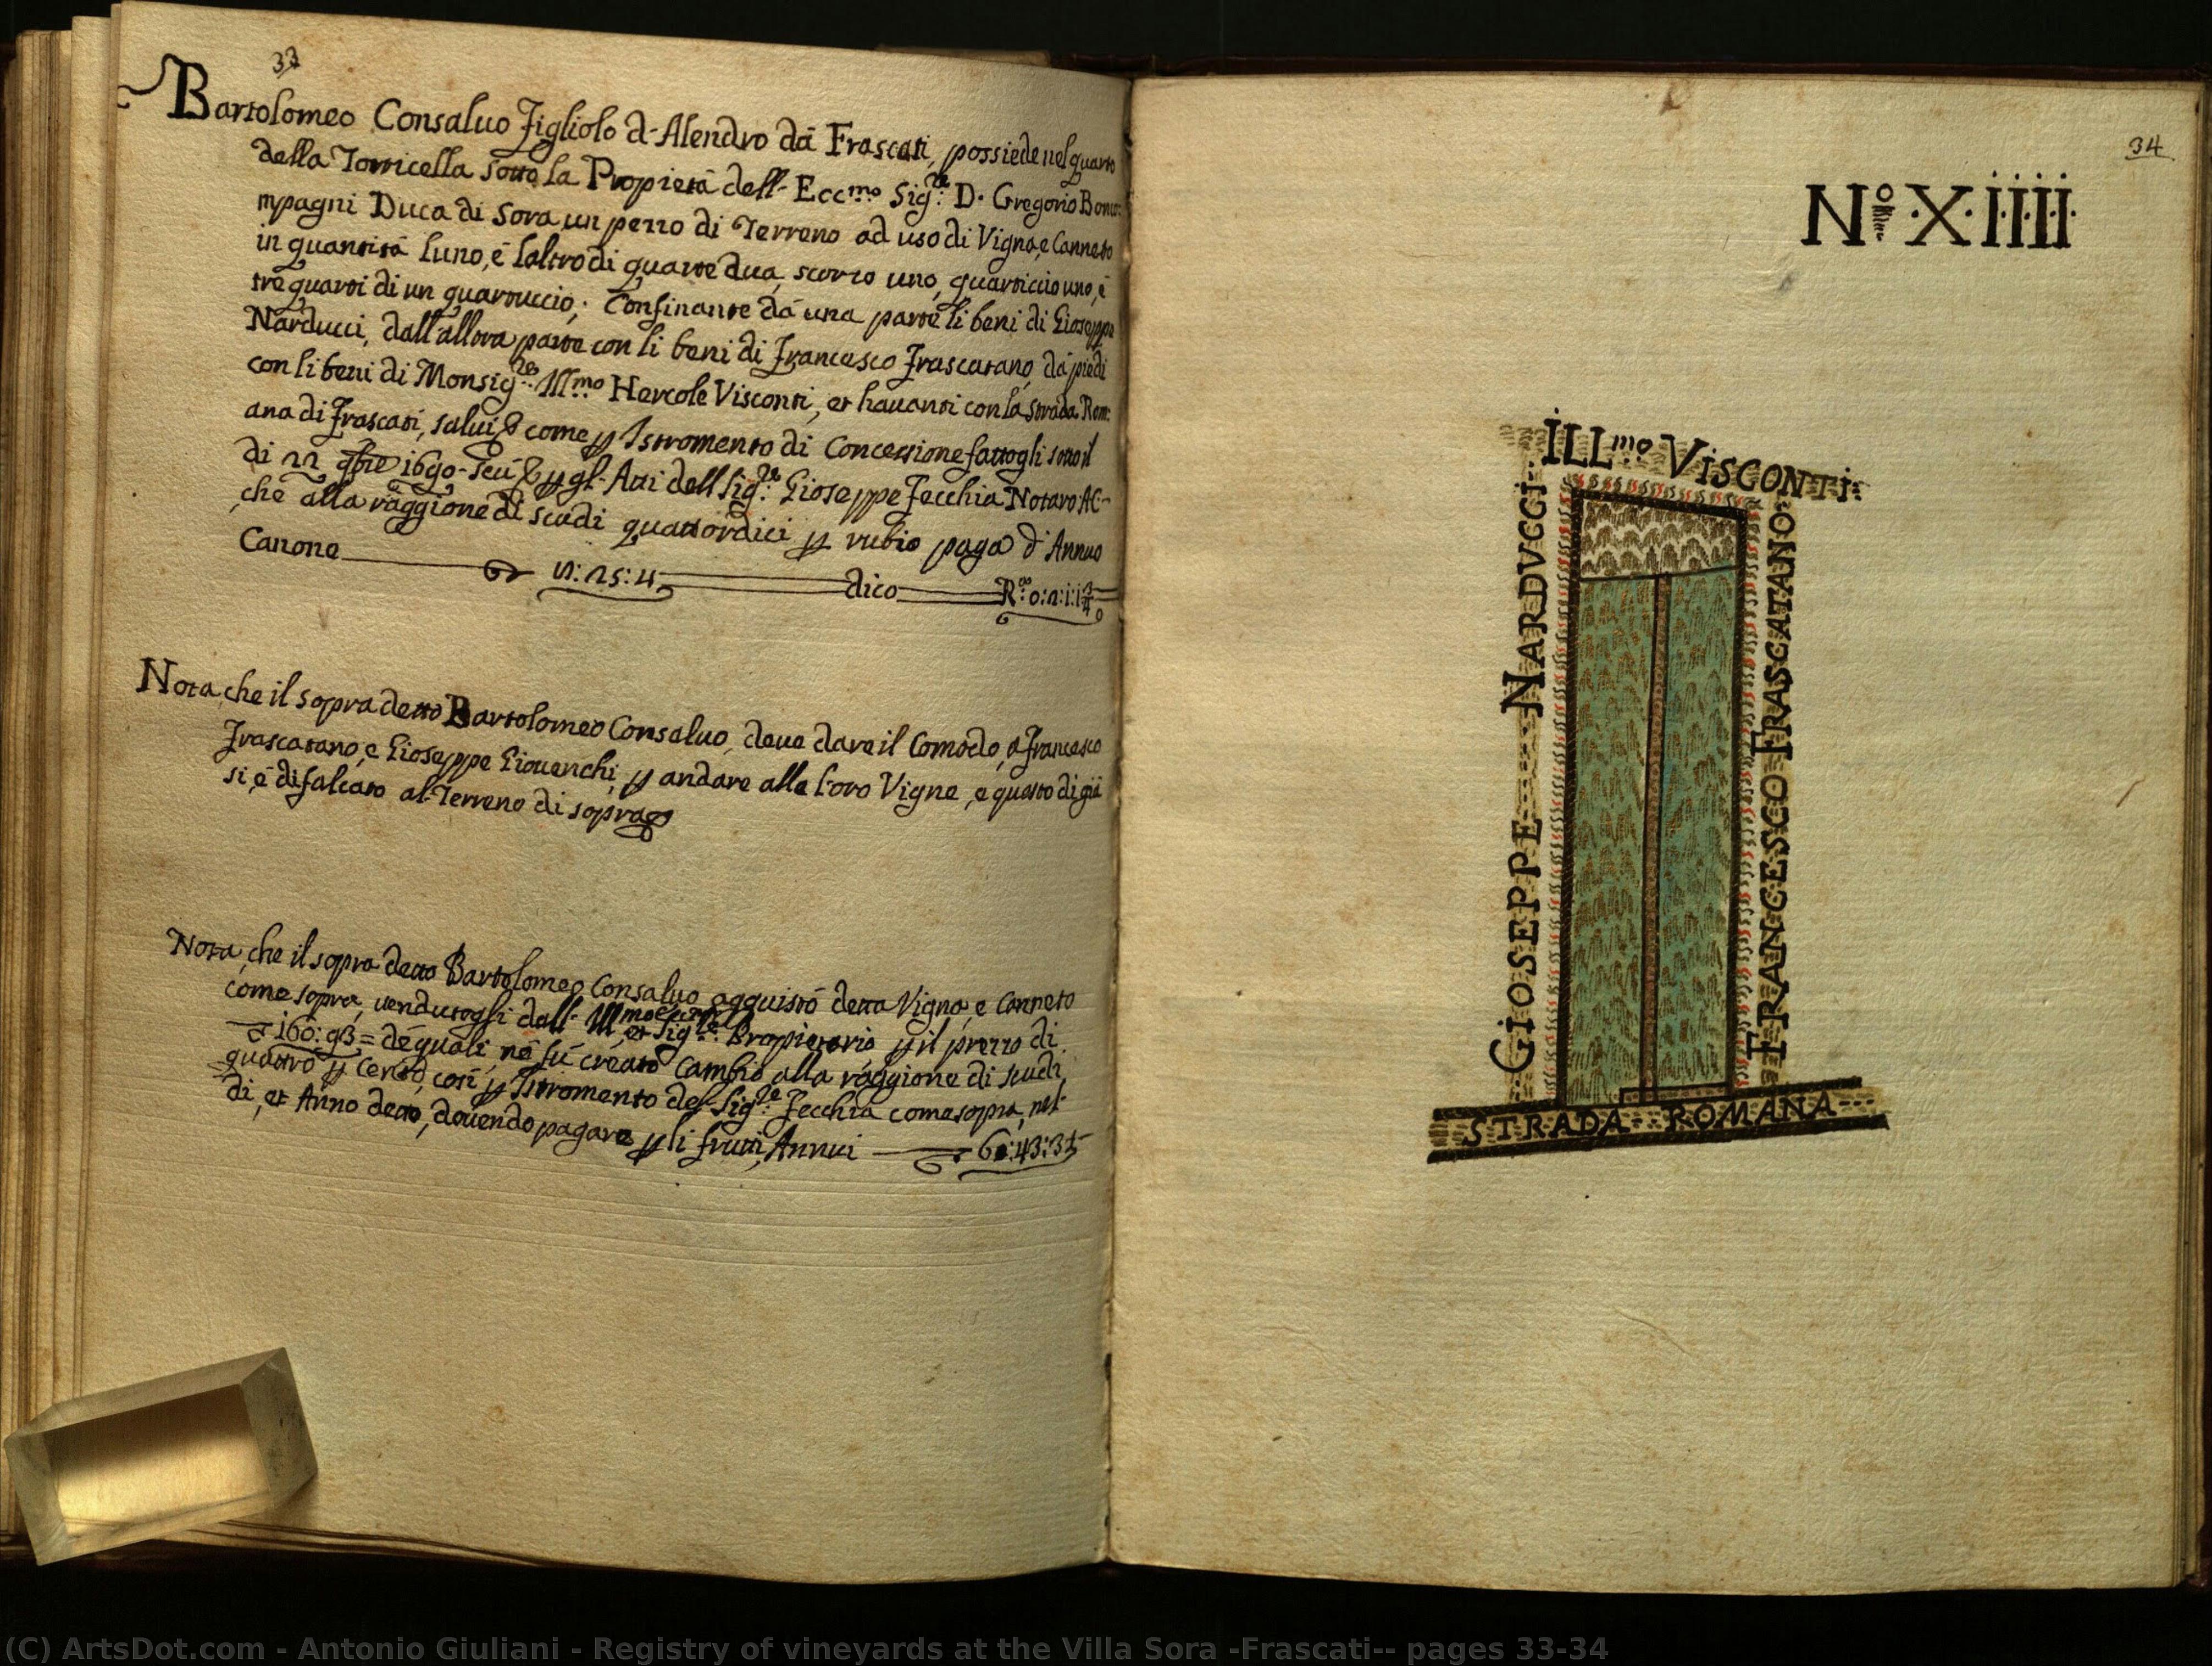 33
Bartolomeo Consaluo figliolo d'Alendro dà Frascati, possiede nel quarto
della Torricella sotto la Propietà dell' Ecc.mo Sig.re D. Gregorio Bonco:
mpagni Duca di Sora un pezzo di Terreno ad uso di Vigna, e Canneto
in quantità l'uno, è l'altro di quarte dua, scorzo uno, quarticcio uno, è
tre quarti di un quartuccio; Confinante dà una parte li beni di Gioseppe
Narducci, dall'altra parte con li beni di Francesco Frascatano, dà piedi
con li beni di Monsig.re Ill.mo Hercole Visconti, et havanti con la strada Rom:
ana di Frascati, salui & come p Istromento di Concessione fattogli sotto il
di 22 9bre 1690 - seù & p gl' Atti dell Sig.re Gioseppe Fecchia Notaro AC-
che alla raggione di scudi quattordici p rubio paga d'Annuo
Canone dico R.o 0:2:1:1¾
Nota che il sopra detto Bartolomeo Consaluo, deue dare il Comodo, a Francesco
Frascatano, e Gioseppe Giouenchi, p andare alle loro Vigne, e questo di già
si, è difalcato al Terreno di sopra
Nota, che il sopra detto Bartolomeo Consaluo acquistò detta Vigna, e Canneto
come sopra, uendutogli dall' Ill.mo et Sig.re Propietario p il prezzo di
160:93 = dè quali, ne fù creato Cambio alla raggione di scudi
quattro p cento, così p Istromento del Sig.re Fecchia come sopra, nel
di, et Anno detto, douendo pagare p li frutti Annui 6:43:3½
34
N.o X·IIII·
ILL.mo VISCONTI
GIOSEPPE NARDVCCI
FRANCESCO FRASCATANO
STRADA ROMANA
(C) ArtsDot.com - Antonio Giuliani - Registry of vineyards at the Villa Sora -Frascati-- pages 33-34